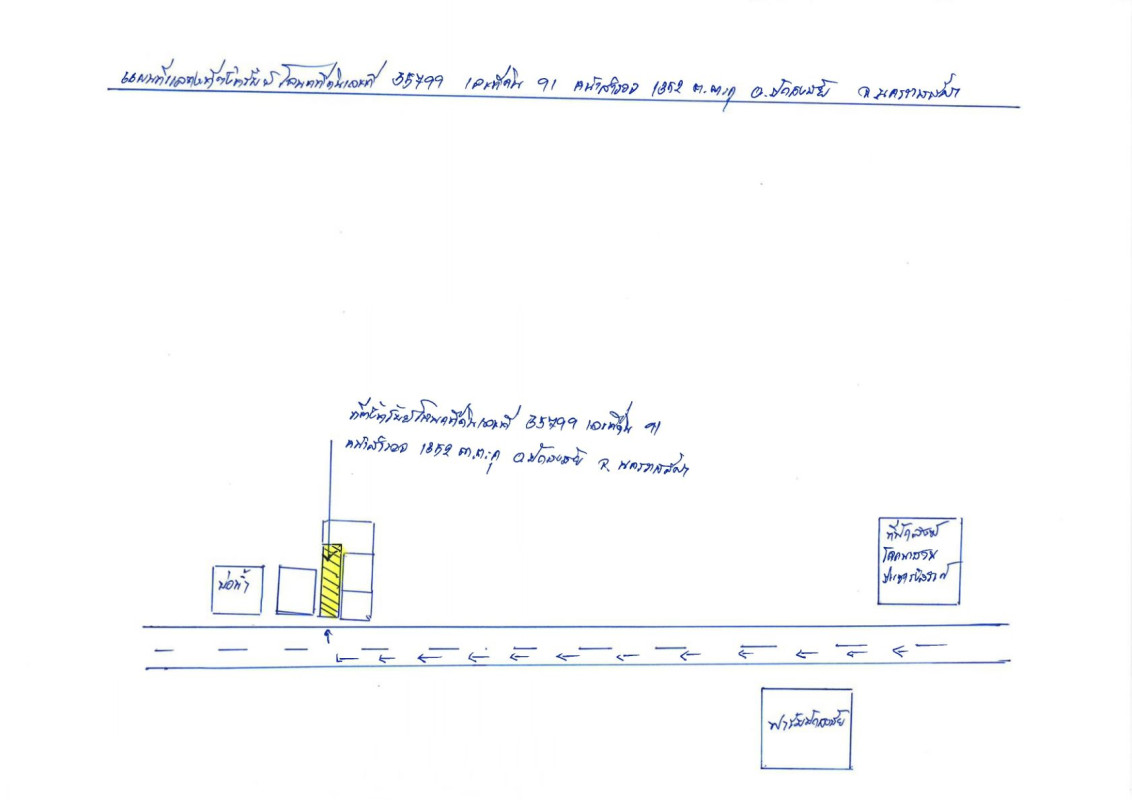 แผนที่แสดงที่ตั้งทรัพย์ โฉนดที่ดินเลขที่ 35799 เลขที่ดิน 91 หน้าสำรวจ 1852 ต.ตะคุ อ.ปักธงชัย จ.นครราชสีมา
ที่ตั้งทรัพย์โฉนดที่ดินเลขที่ 35799 เลขที่ดิน 91
หน้าสำรวจ 1852 ต.ตะคุ อ.ปักธงชัย จ.นครราชสีมา
บ่อน้ำ